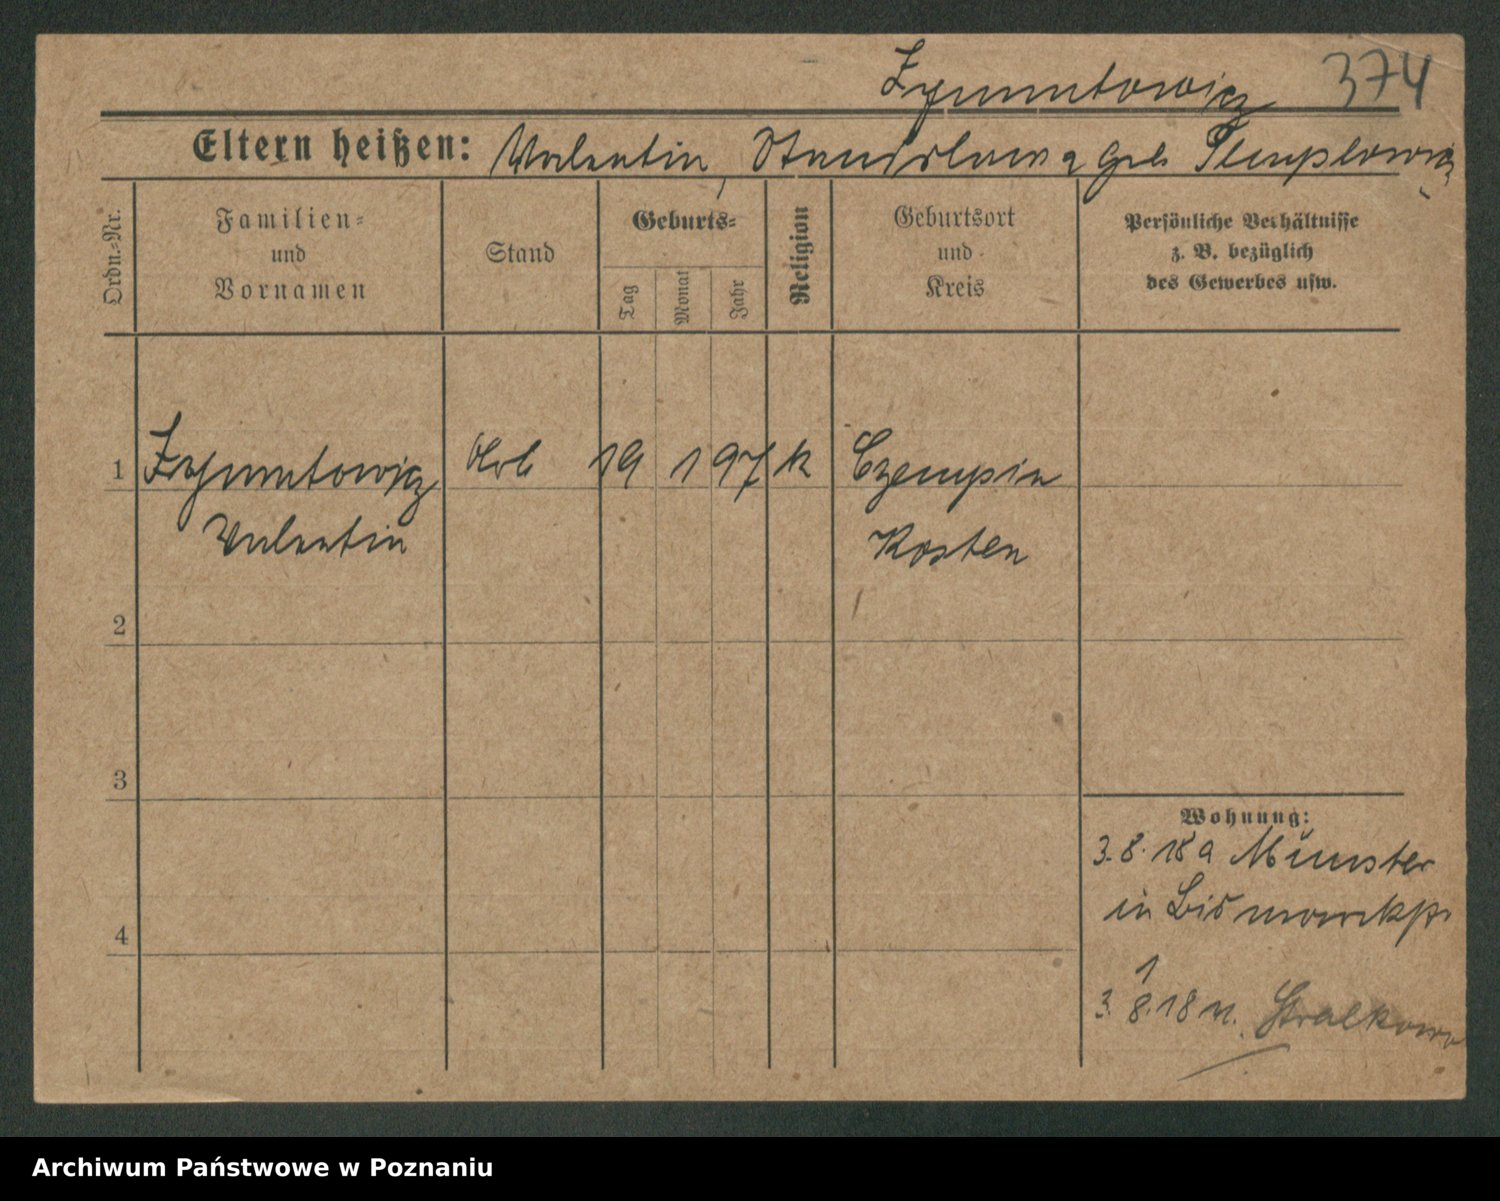 Zymuntowicz 374
Eltern heißen: Valentin, Stanislawa geb
Ordn.-Nr.
Familien-
und
Vornamen
Stand
Geburts-
Tag
Monat
Jahr
Religion
Geburtsort
und
Kreis
Persönliche Verhältnisse
z. B. bezüglich
des Gewerbes usw.
1 Zymuntowicz Arb 19 1 97 k Czempin
Valentin Kosten
2
3
4
Wohnung:
3.8.18 a Münster
in Bismarckstr
1
3. 8. 18 n. Stralkowo
Archiwum Państwowe w Poznaniu